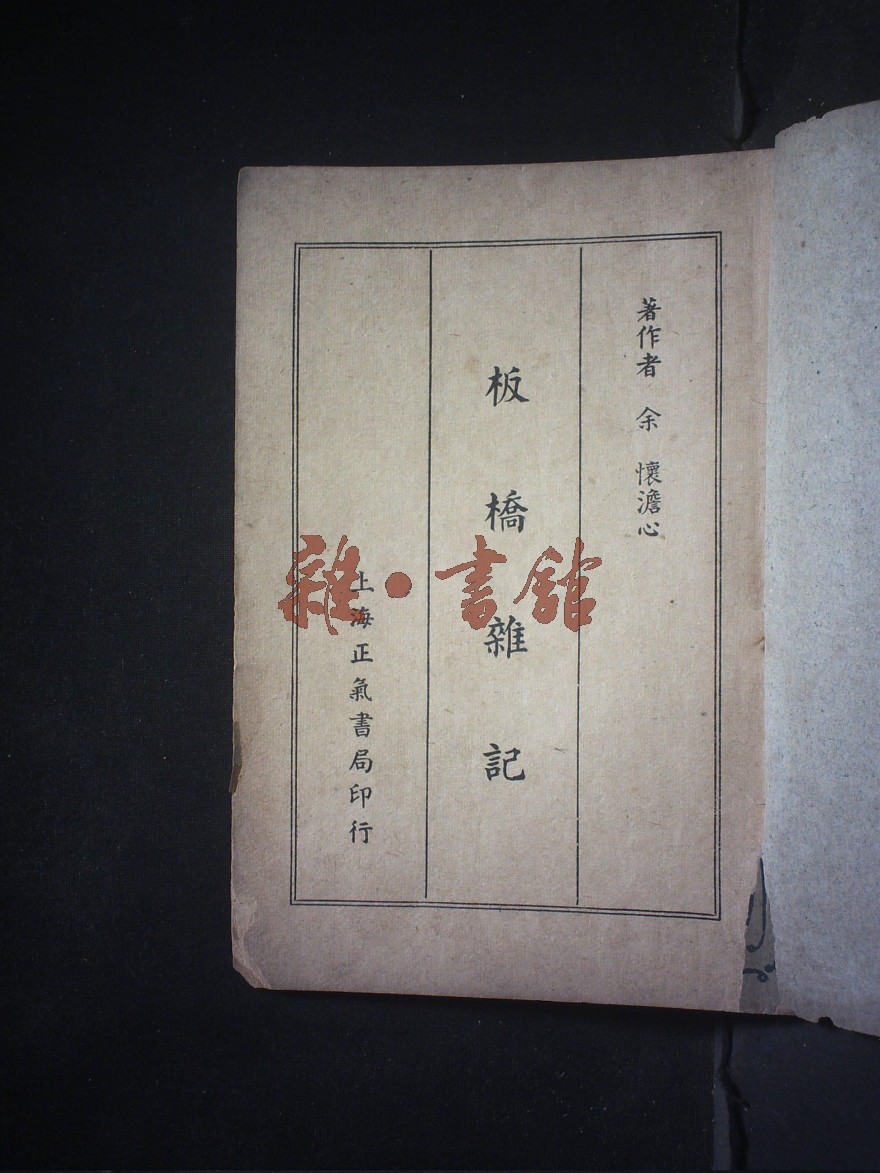 著作者　余　懷澹心
板橋雜記
上海正氣書局印行
雜·書館